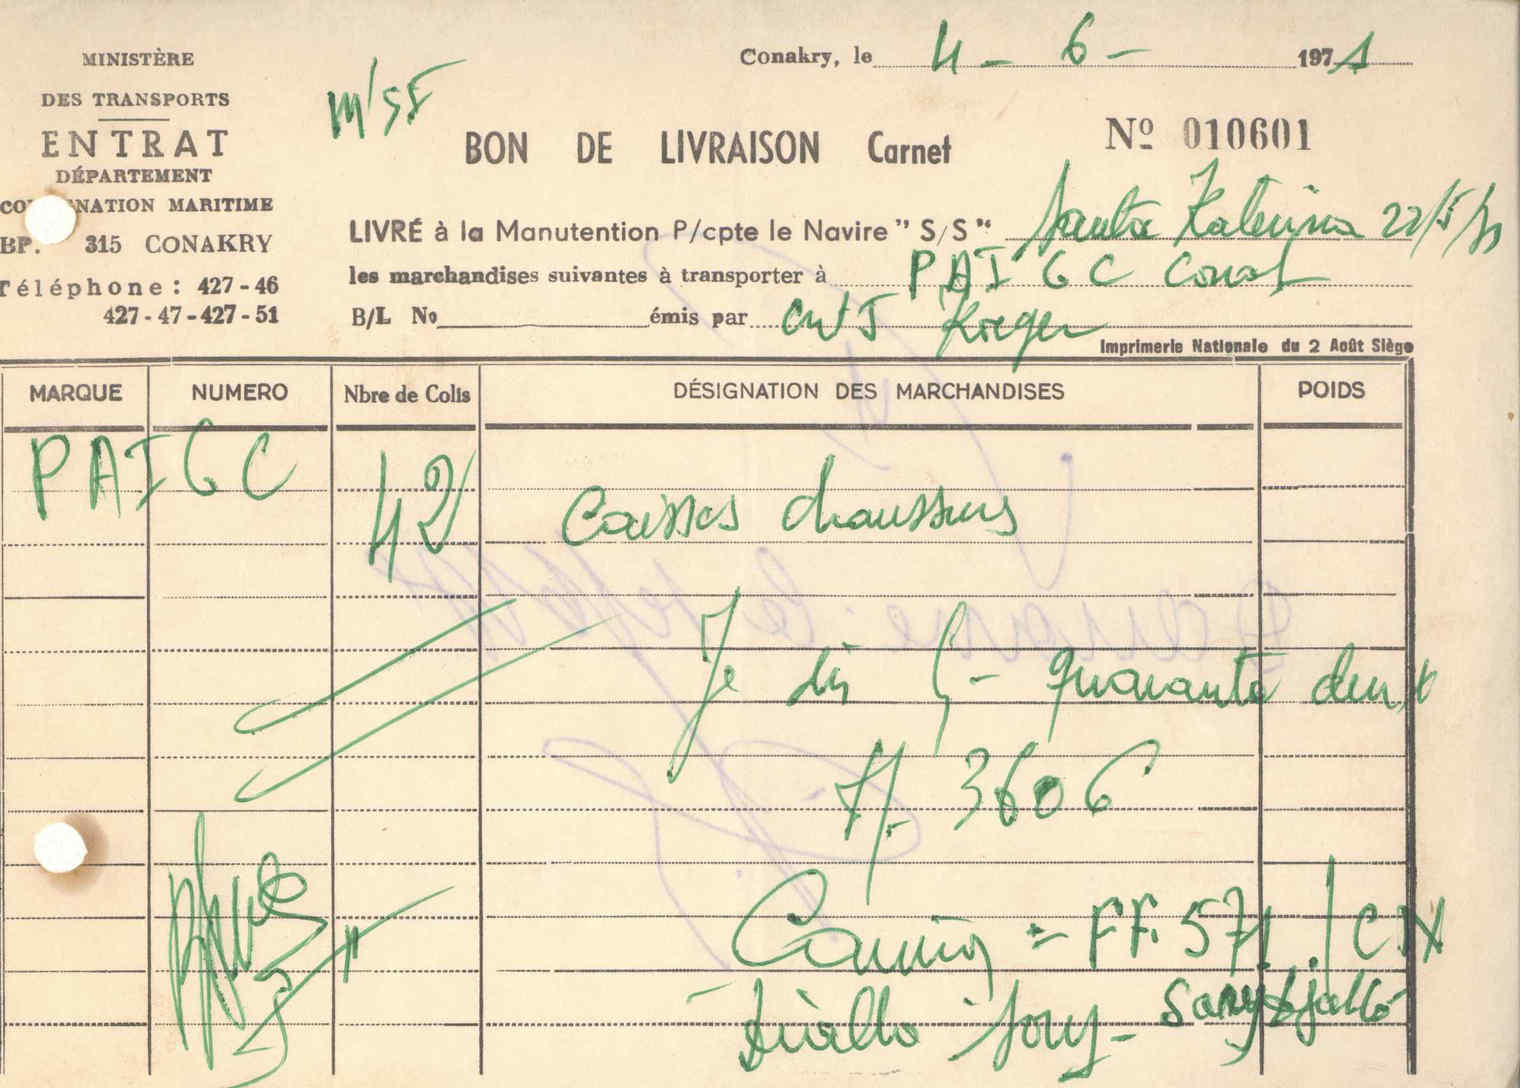 MINISTÈRE
DES TRANSPORTS
ENTRAT
DÉPARTEMENT
CO NATION MARITIME
BP. 315 CONAKRY
Téléphone : 427-46
427-47-427-51
Conakry, le 4-6-1971
BON DE LIVRAISON Carnet
Nº 010601
LIVRÉ à la Manutention P/cpte le Navire " S/S " Santa Katerina 22/5/71
les marchandises suivantes à transporter à PAIGC
B/L No émis par
Imprimerie Nationale du 2 Août Siège
MARQUE NUMERO Nbre de Colis DÉSIGNATION DES MARCHANDISES POIDS
PAIGC 42 Caisses chaussures
Je dis quarante deux
3606
Camion = FF. 571 / C
Diallo Sory - Sory Djallo